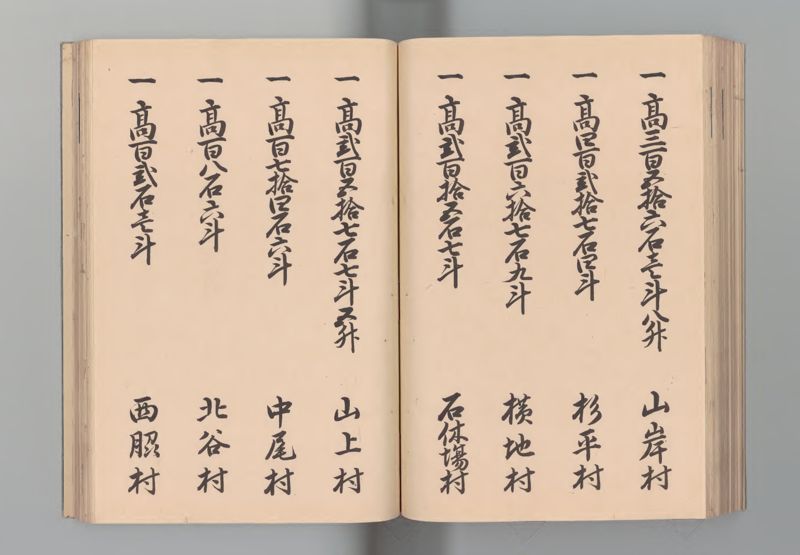 一 高三百五拾六石壱斗八升 山岸村
一 高四百弐拾七石四斗 杉平村
一 高弐百六拾七石九斗 横地村
一 高弐百拾五石七斗 石休場村
一 高弐百五拾七石七斗五升 山上村
一 高百七拾四石六斗 中尾村
一 高百八石六斗 北谷村
一 高百弐石壱斗 西脇村